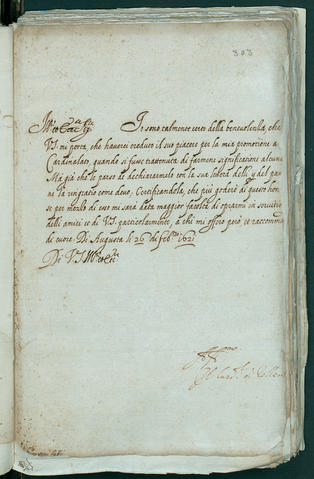 303
Io sono talmente certo della benevolenza, che
V.S. mi porta, che haverei creduto il suo piacere per la mia promotione al
Cardinalato, quando si fusse trattenuta di farmene significatione alcuna
Ma già che le è parso di dichiararmelo con la sua lettera delli del
la ringratio come devo, Certificandola, che più goderò di questo honore
se per mezzo di esso mi sarà data maggior facoltà di oprarmi in servitio
delli amici et di V.S. particolarmente, à chi mi offero però et raccommando
di cuore. Di Augusta li 26 di feb.ro 1621
Di V.S.
Il Card.